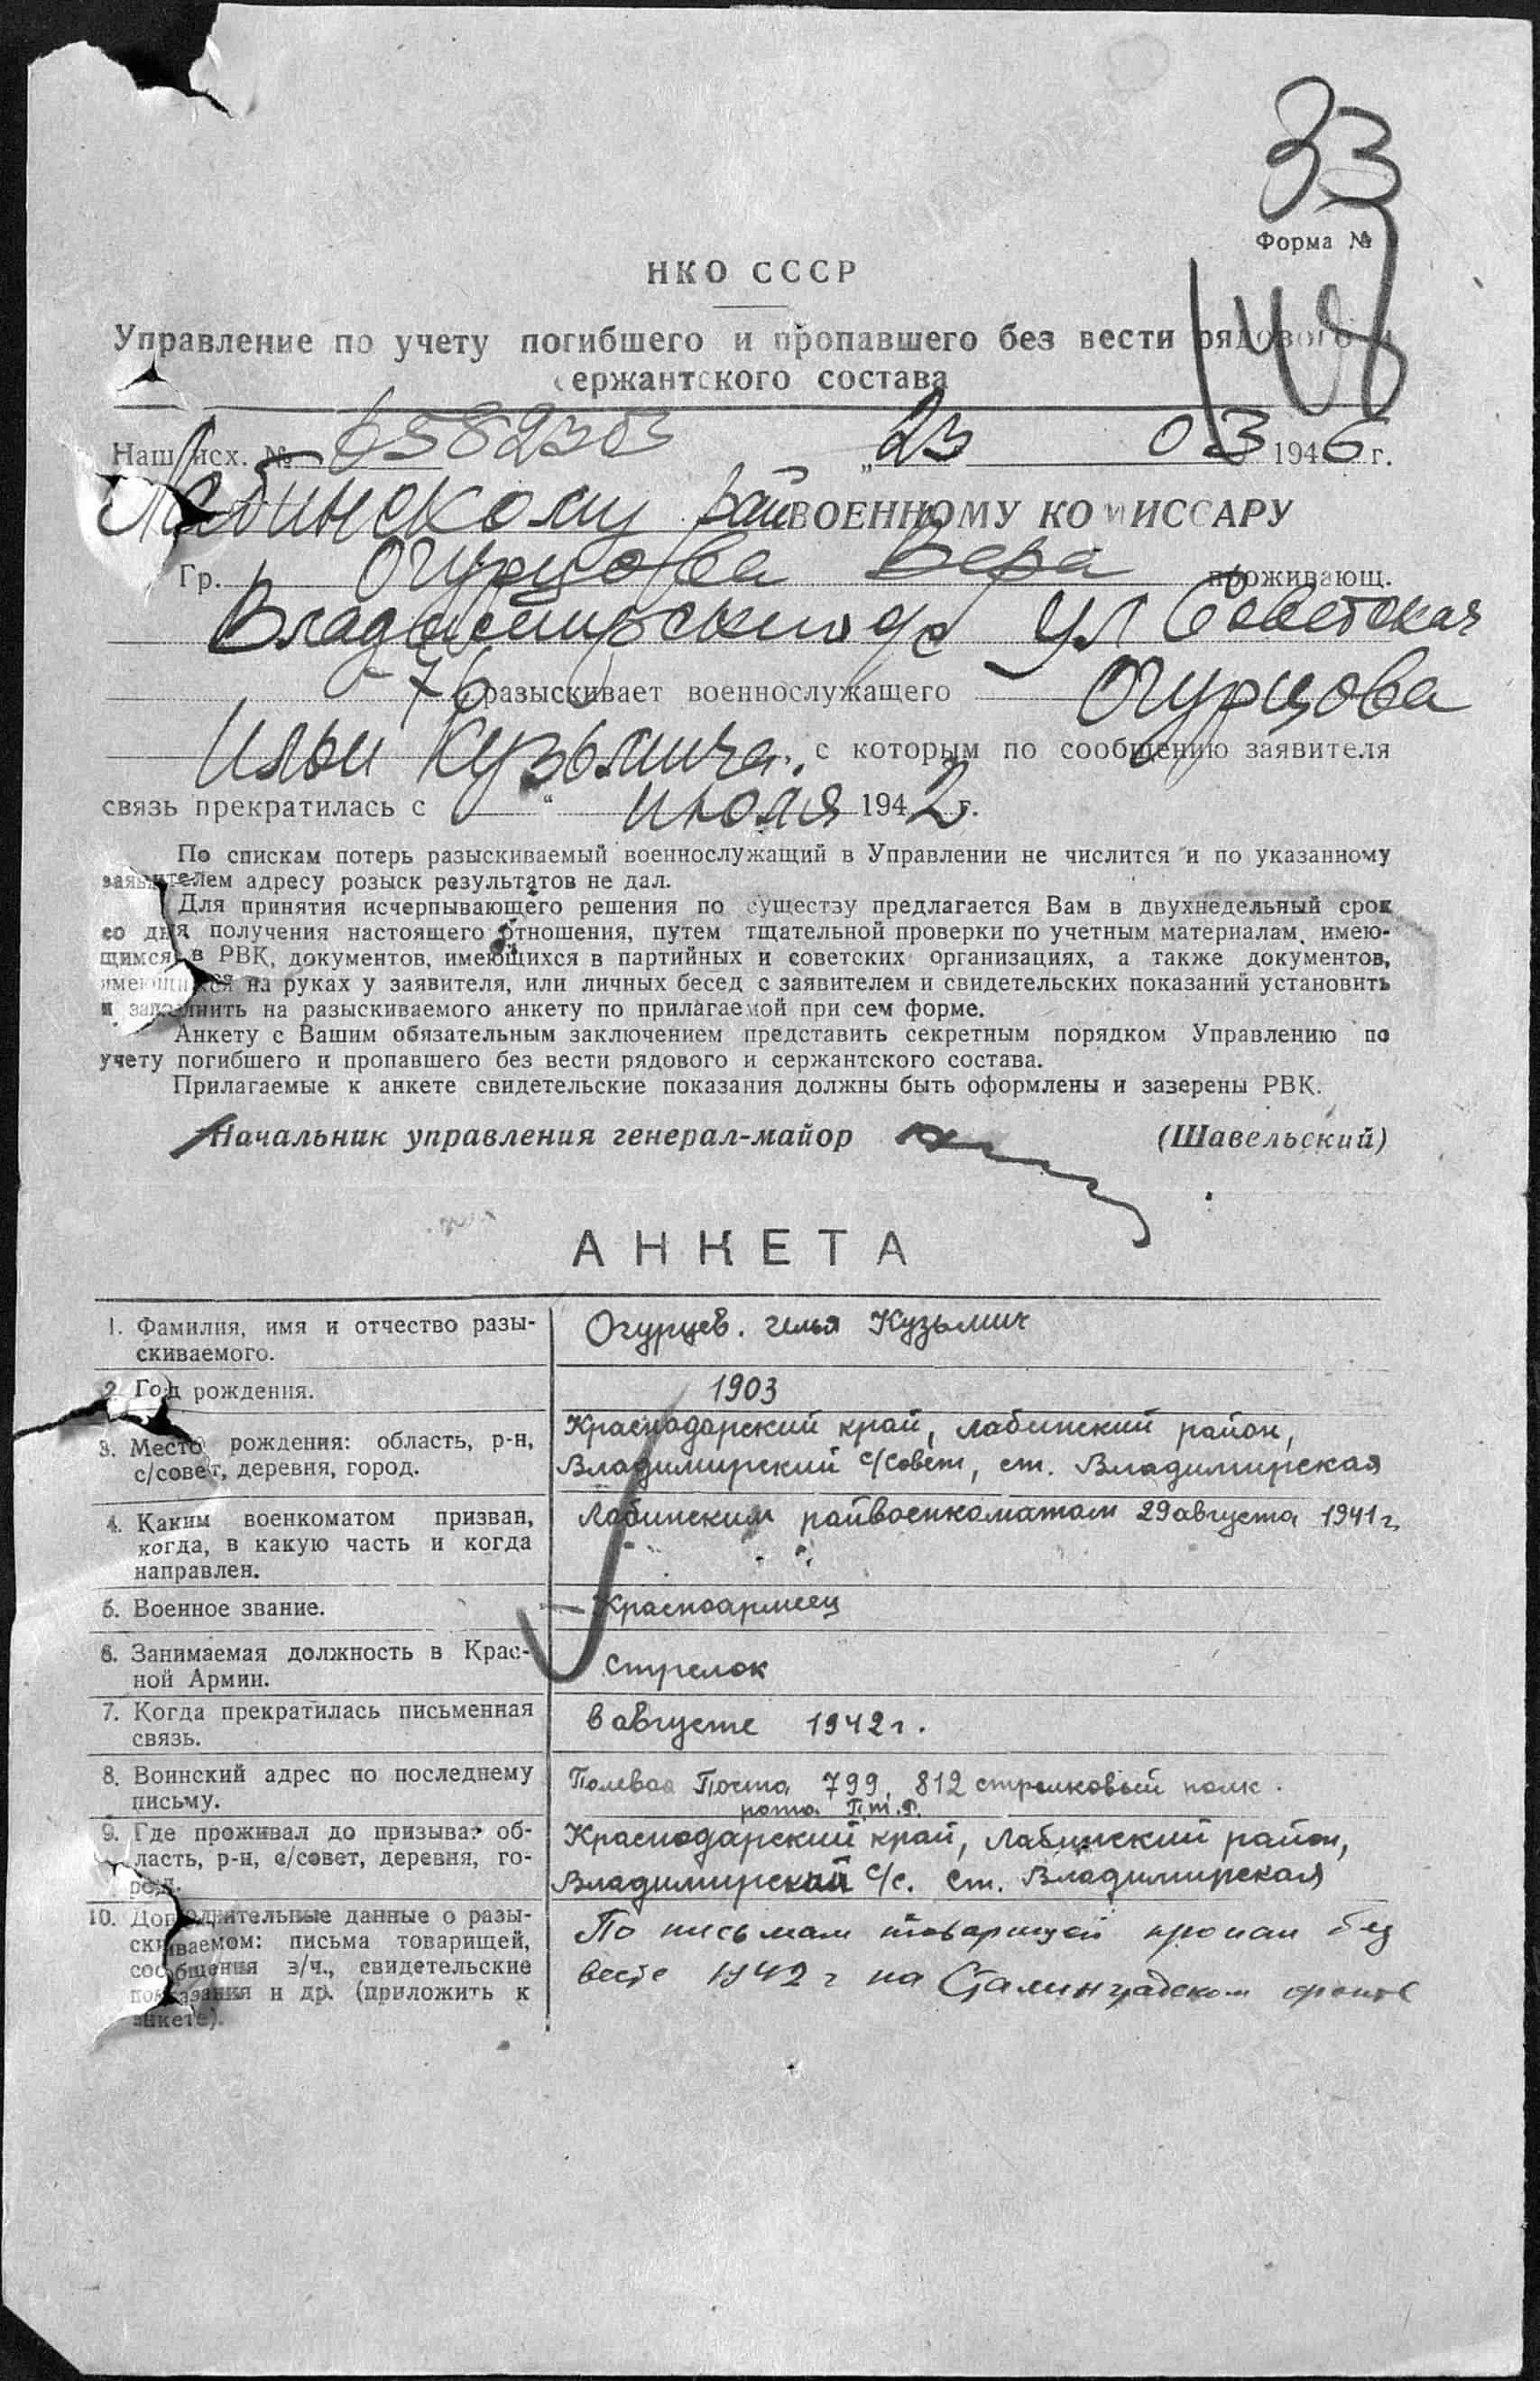 33
Форма №
148
НКО СССР
Управление по учету погибшего и пропавшего без вести рядового и
сержантского состава
Наш исх. № 658235 „23 03 1946 г.
Лабинскому рай ВОЕННОМУ КОМИССАРУ
Гр. Огурцова Вера проживающ.
ул Советская
76 разыскивает военнослужащего Огурцова
Ильи Кузьмича, с которым по сообщению заявителя
связь прекратилась с „ “ июля 1942 г.
По спискам потерь разыскиваемый военнослужащий в Управлении не числится и по указанному
заявителем адресу розыск результатов не дал.
Для принятия исчерпывающего решения по существу предлагается Вам в двухнедельный срок
со дня получения настоящего отношения, путем тщательной проверки по учетным материалам, имею-
щимся в РВК, документов, имеющихся в партийных и советских организациях, а также документов,
имеющихся на руках у заявителя, или личных бесед с заявителем и свидетельских показаний установить
и заполнить на разыскиваемого анкету по прилагаемой при сем форме.
Анкету с Вашим обязательным заключением представить секретным порядком Управлению по
учету погибшего и пропавшего без вести рядового и сержантского состава.
Прилагаемые к анкете свидетельские показания должны быть оформлены и заверены РВК.
Начальник управления генерал-майор (Шавельский)
АНКЕТА
1. Фамилия, имя и отчество разы- Огурцев. Илья Кузьмич
скиваемого.
2. Год рождения. 1903
Краснодарский край, Лабинский район,
3. Место рождения: область, р-н,
с/совет, деревня, город. Владимирский с/совет, ст. Владимирская
4. Каким военкоматом призван, Лабинским райвоенкоматом 29 августа 1941 г.
когда, в какую часть и когда
направлен.
5. Военное звание. Красноармеец
6. Занимаемая должность в Крас-
ной Армии. Стрелок
7. Когда прекратилась письменная в августе 1942 г.
связь.
8. Воинский адрес по последнему Полевая Почта 799, 812 стрелковый полк.
письму. рота П.т.Р.
9. Где проживал до призыва: об- Краснодарский край, Лабинский район,
ласть, р-н, с/совет, деревня, го- Владимирский с/с. ст. Владимирская
род.
10. Дополнительные данные о разы- По письмам товарищей пропал без
скиваемом: письма товарищей,
сообщения в/ч., свидетельские вести 1942 г на Сталинградском фронте
показания и др. (приложить к
анкете).